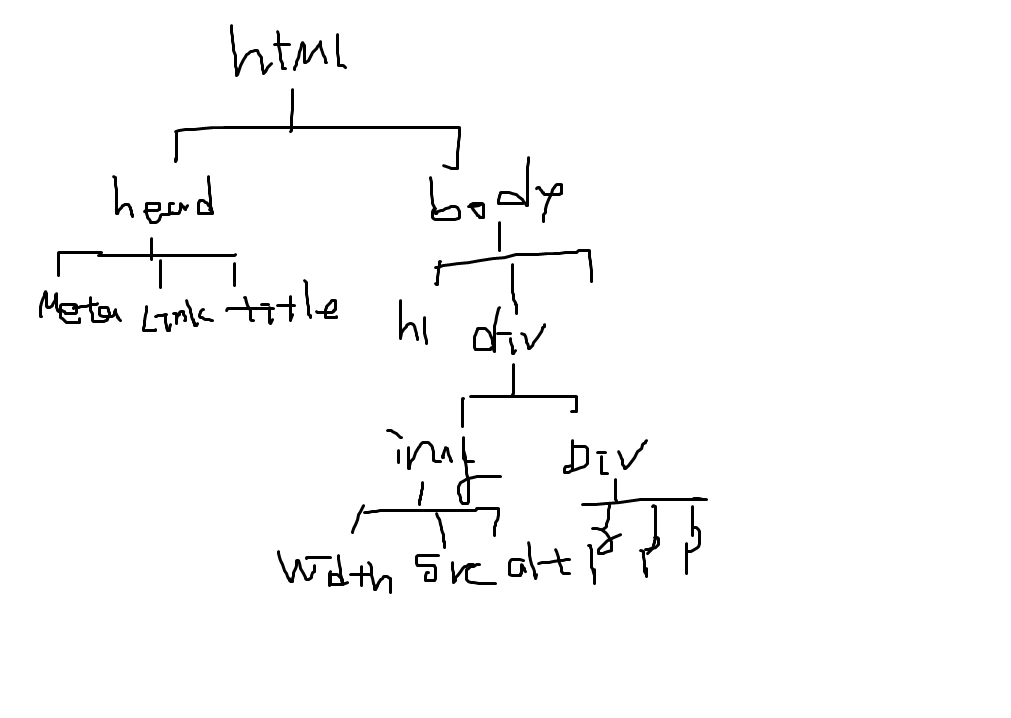 html
head body
Meta Link title
h1 div
img Div
Width Src alt p p p